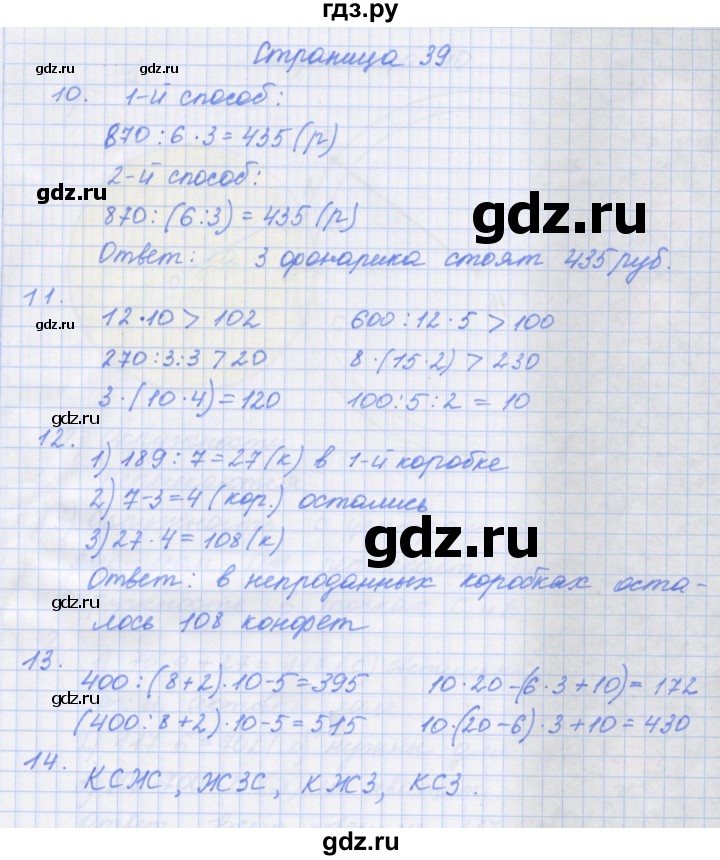 гдз.ру
Страница 39
gdz.ru gdz.ru
10. 1-й способ:
870:6·3=435(р)
2-й способ:
gdz.ru
gdz.ru
870:(6:3)=435(р)
Ответ: 3 фонарика стоят 435 руб.
11.
12·10>102 600:12·5>100
gdz.ru
270:3:3>20 8·(15·2)>230
3·(10·4)=120 100:5:2=10
gdz.ru
12.
1) 189:7=27(к) в 1-й коробке
2) 7-3=4(кор.) остались
gdz.ru
3) 27·4=108(к)
gdz.ru
Ответ: в непроданных коробках оста-
gdz.ru
лось 108 конфет
13.
400:(8+2)·10-5=395 10·20-(6·3+10)=172
gdz.ru
(400:8+2)·10-5=515 10·(20-6)·3+10=430
14.
КСЖС, ЖЗС, КЖЗ, КСЗ.
gdz.ru
gdz.ru